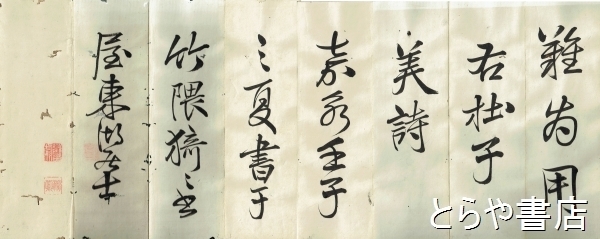 難為用
右杜子
美詩
嘉永壬子
之夏書于
竹隈猗
屋東湖居士
とらや書店